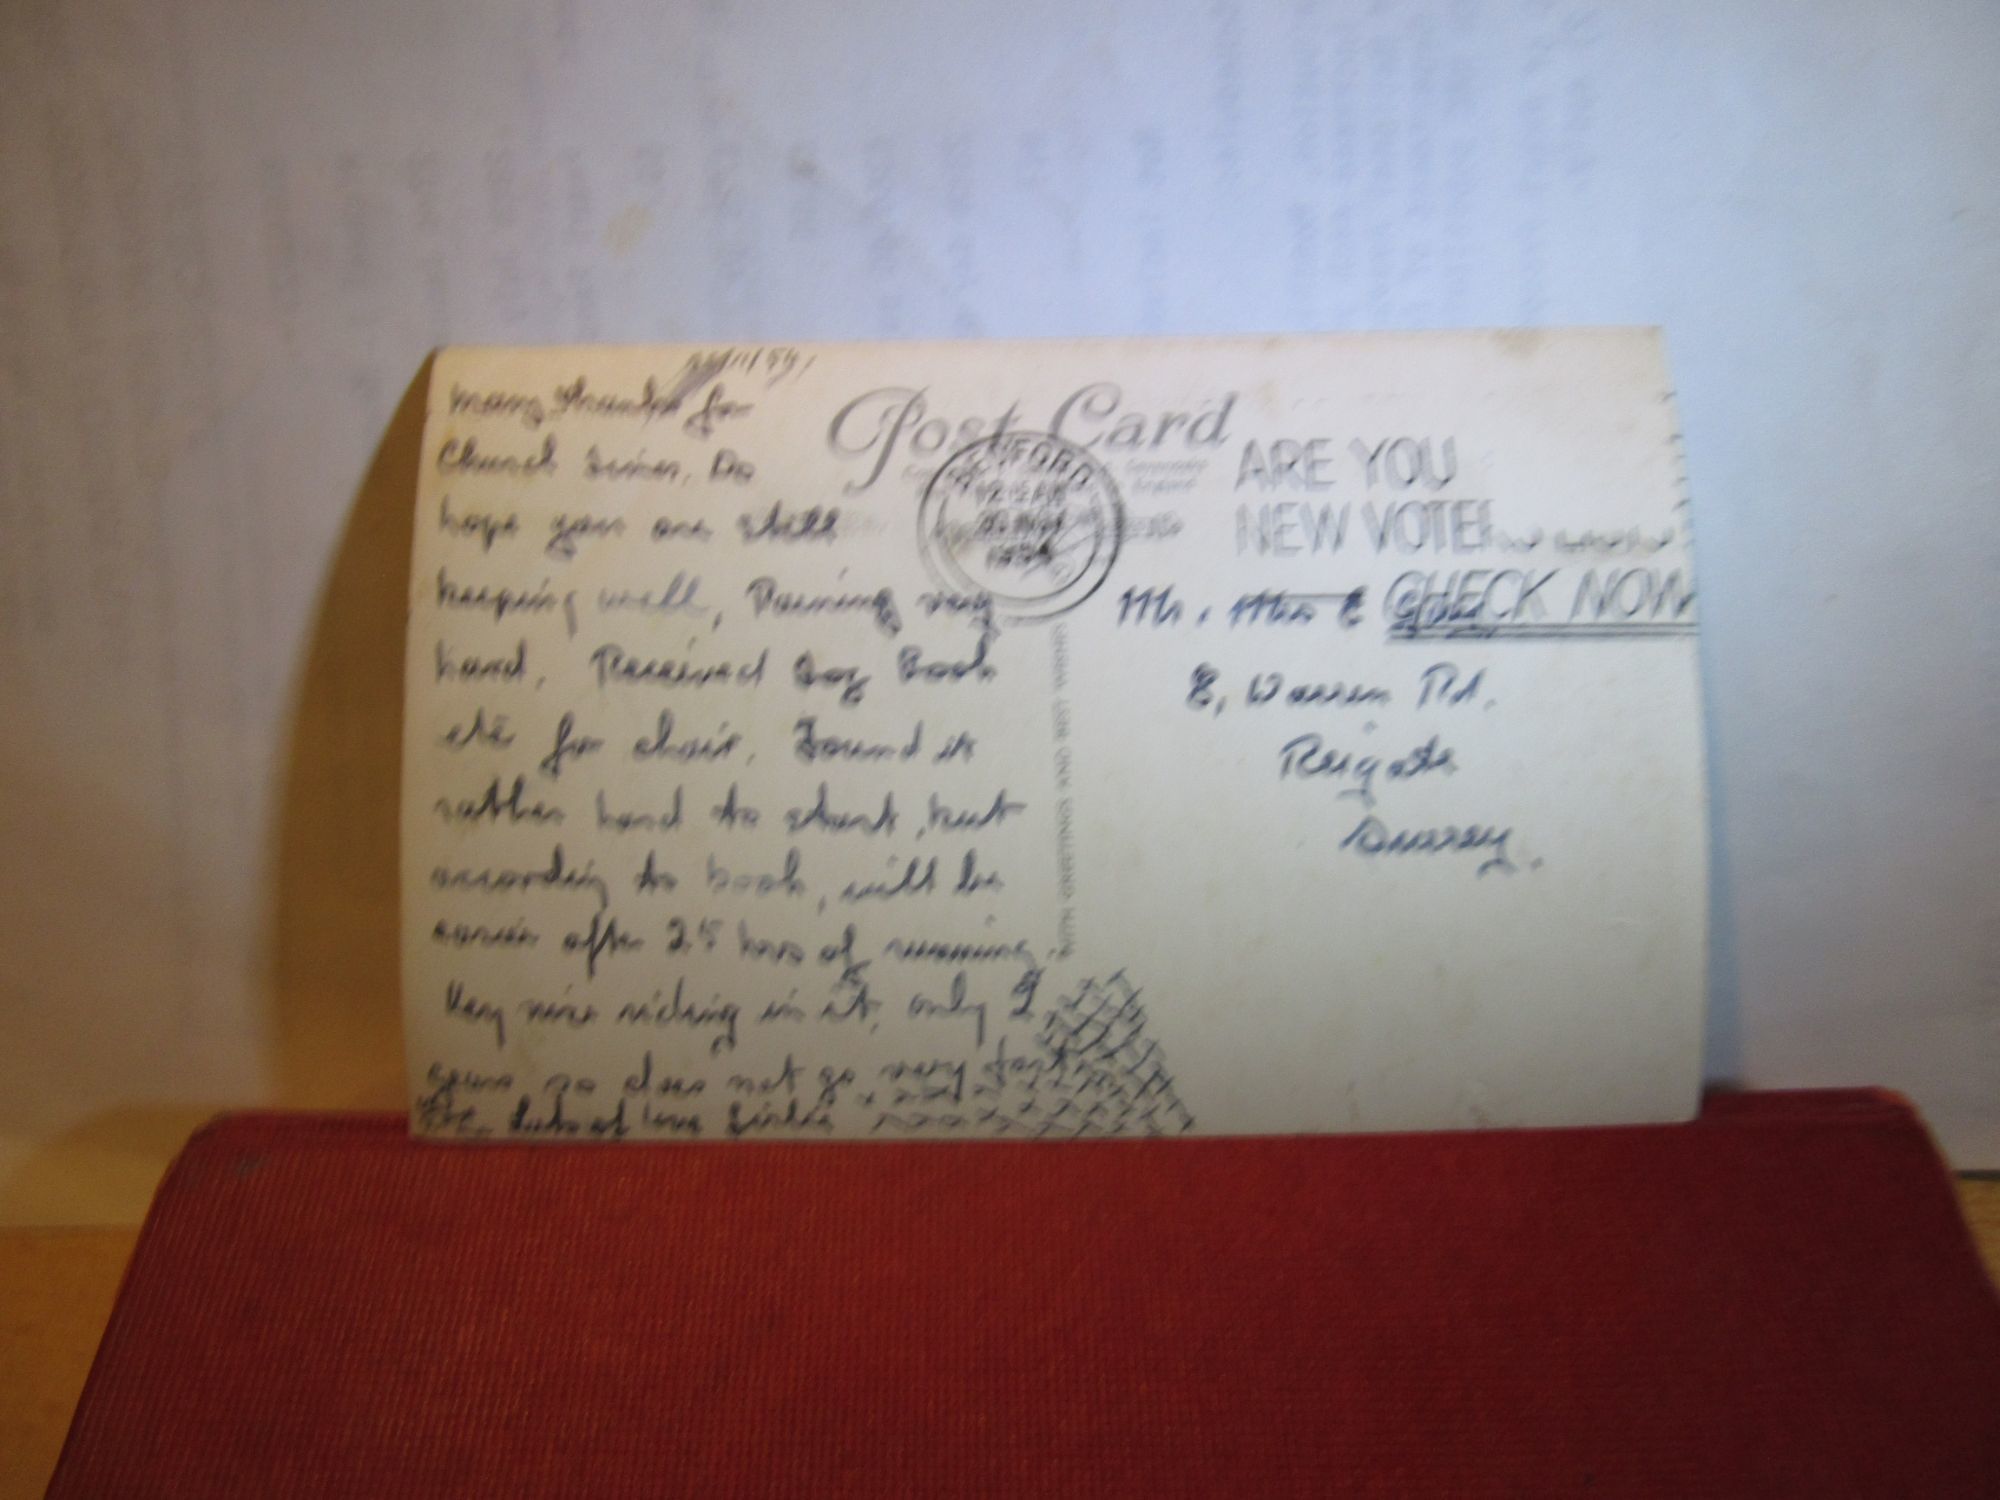 /11/54
Many thanks for
Church Times. Do
hope you are still
keeping well, Raining very
hard. Received Log Book
etc for chair. Found it
rather hard to start, but
according to book, will be
easier after 25 hrs of running.
Very nice riding in it, only 2
gears so does not go very fast
love
Post Card
ARE YOU
NEW VOTE
CHECK NOW
Mr. Mrs E
8, Warren Rd.
Reigate
Surrey.